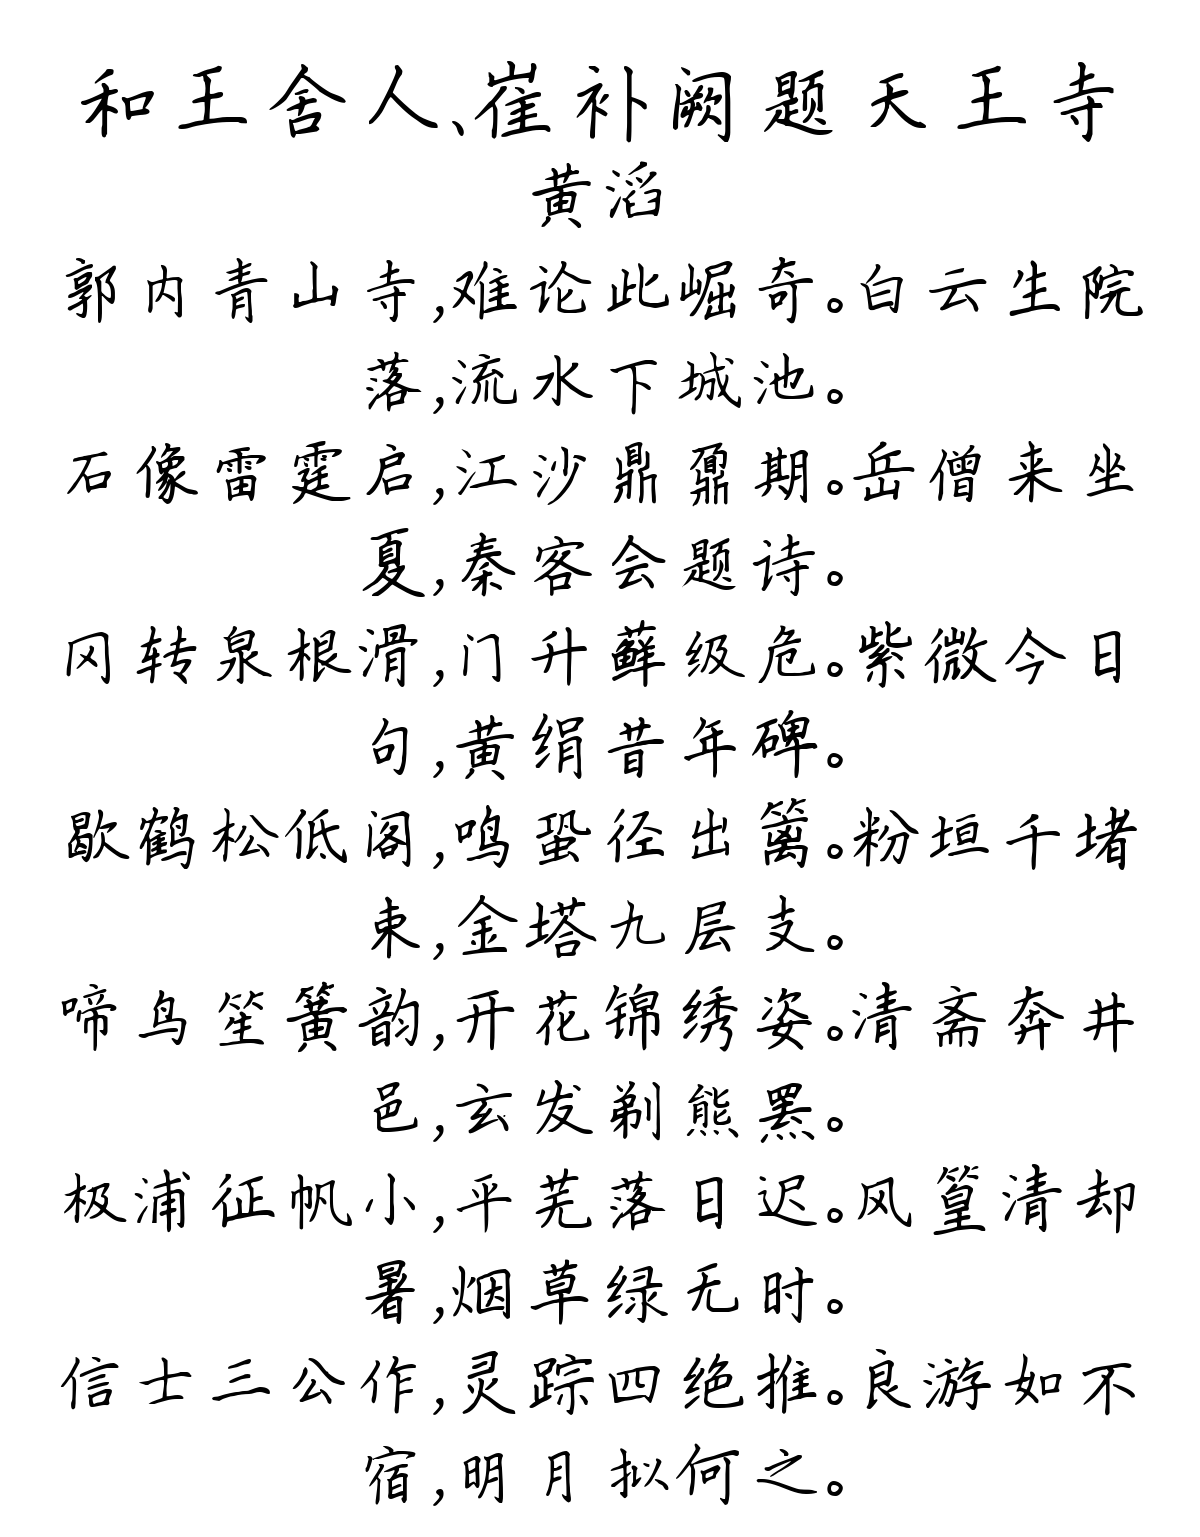 和王舍人、崔补阙题天王寺
黄滔
郭内青山寺,难论此崛奇。白云生院
落,流水下城池。
石像雷霆启,江沙鼎鼐期。岳僧来坐
夏,秦客会题诗。
冈转泉根滑,门升藓级危。紫微今日
句,黄绢昔年碑。
歇鹤松低阁,鸣蛩径出篱。粉垣千堵
束,金塔九层支。
啼鸟笙簧韵,开花锦绣姿。清斋奔井
邑,玄发剃熊罴。
极浦征帆小,平芜落日迟。风篁清却
暑,烟草绿无时。
信士三公作,灵踪四绝推。良游如不
宿,明月拟何之。